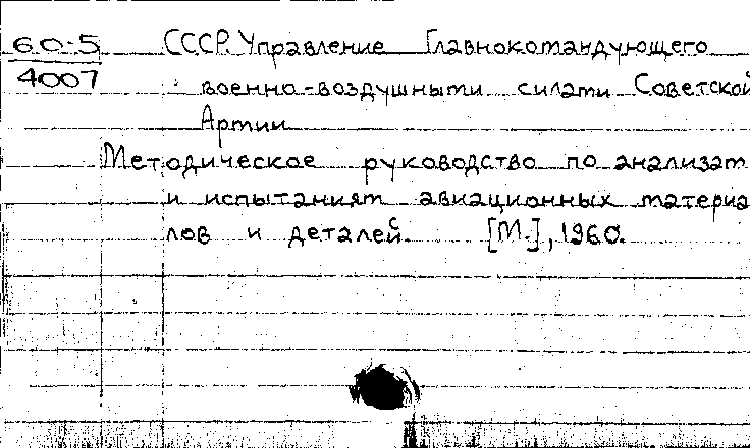 60-5
4007
СССР. Управление Главнокомандующего
военно-воздушными силами Советской
Армии
Методическое руководство по анализам
и испытаниям авиационных материа
лов и деталей. [М.], 1960.